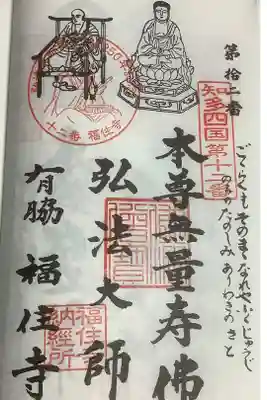 第拾二番
知多四国第十二番
ごくらくもそのまゝなれやふくじゅうじ
のちのたのしみありわきのさと
本尊無量寿佛
弘法大師
十二番 福住寺
有脇 福住寺
福住寺
納経所